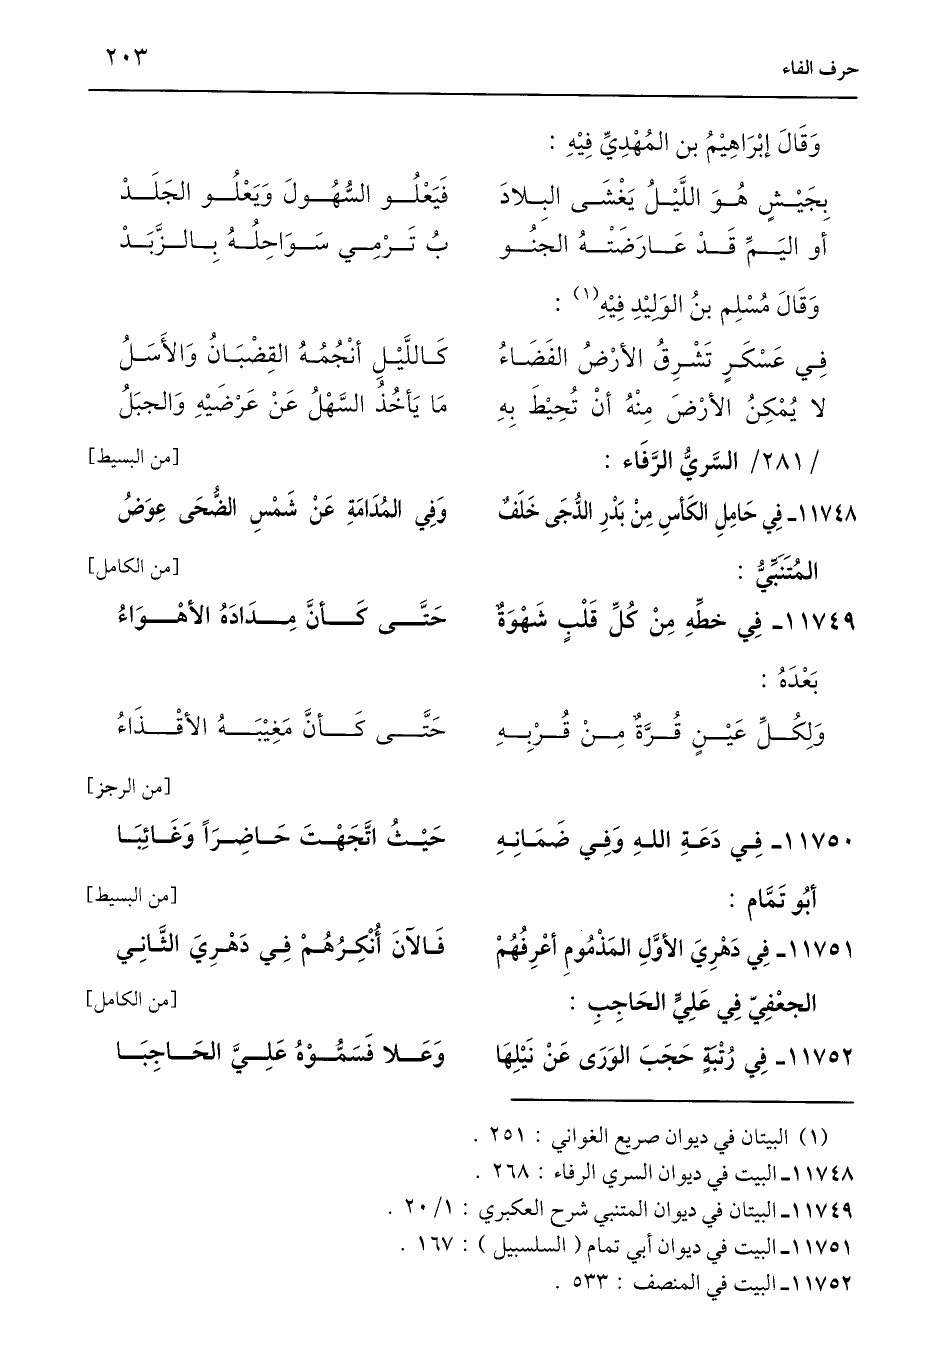 حرف الفاء ٢٠٣
وَقَالَ إِبْرَاهِيْمُ بن المُهْدِيِّ فِيْهِ :
بِجَيْـشٍ هُـوَ اللَّيْـلُ يَغْشَـى البِـلادَ فَيَعْلُـو السُّهُـولَ وَيَعْلُـو الجَلَـدْ
أو اليَـمِّ قَـدْ عَـارَضَتْـهُ الجنُـو بُ تَـرْمِـي سَـوَاحِلُـهُ بِـالـزَّبَـدْ
وَقَالَ مُسْلِم بنُ الوَلِيْدِ فِيْهِ(١) :
فِـي عَسْكَـرٍ تَشْرِقُ الأرْضُ الفَضَـاءُ كَـاللَّيْـلِ أنْجُمُـهُ القِضْبَـانُ وَالأَسَـلُ
لا يُمْكِنُ الأرْضَ مِنْهُ أنْ تُحِيْطَ بِهِ مَا يَأخُذُ السَّهْلُ عَنْ عَرْضَيْهِ وَالجبَلُ
/ ٢٨١/ السَّرِيُّ الرَّفَاء : [من البسيط]
١١٧٤٨ـ فِي حَامِلِ الكَأسِ مِنْ بَدْرِ الدُّجَى خَلَفٌ وَفِي المُدَامَةِ عَنْ شَمْسِ الضُّحَى عِوَضُ
المُتَنَبِّيُّ : [من الكامل]
١١٧٤٩ـ فِي خطِّهِ مِنْ كُلِّ قَلْبٍ شَهْوَةٌ حَتَّـى كَـأنَّ مِـدَادَهُ الأهْـوَاءُ
بَعْدَهُ :
وَلِكُـلِّ عَيْـنٍ قُـرَّةٌ مِـنْ قُـرْبِـهِ حَتَّـى كَـأنَّ مَغِيْبَـهُ الأقْـذَاءُ
[من الرجز]
١١٧٥٠ـ فِـي دَعَـةِ اللهِ وَفِـي ضَمَـانِـهِ حَيْـثُ اتَّجَهْـتَ حَـاضِـرَاً وَغَـائِبَـا
أبُو تَمَّام : [من البسيط]
١١٧٥١ـ فِي دَهْرِيَ الأوَّلِ المَذْمُومِ أعْرِفُهُمْ فَـالآنَ أُنْكِـرُهُـمْ فِـي دَهْـرِيَ الثَّـانِـي
الجعْفِيّ فِي عَلِيٍّ الحَاجِبِ : [من الكامل]
١١٧٥٢ـ فِي رُتْبَةٍ حَجَبَ الوَرَى عَنْ نَيْلِهَا وَعَـلا فَسَمُّـوْهُ عَلِـيَّ الحَـاجِبَـا
(١) البيتان في ديوان صريع الغواني : ٢٥١ .
١١٧٤٨ـ البيت في ديوان السري الرفاء : ٢٦٨ .
١١٧٤٩ـ البيتان في ديوان المتنبي شرح العكبري : ٢٠/١ .
١١٧٥١ـ البيت في ديوان أبي تمام ( السلسبيل ) : ١٦٧ .
١١٧٥٢ـ البيت في المنصف : ٥٣٣ .